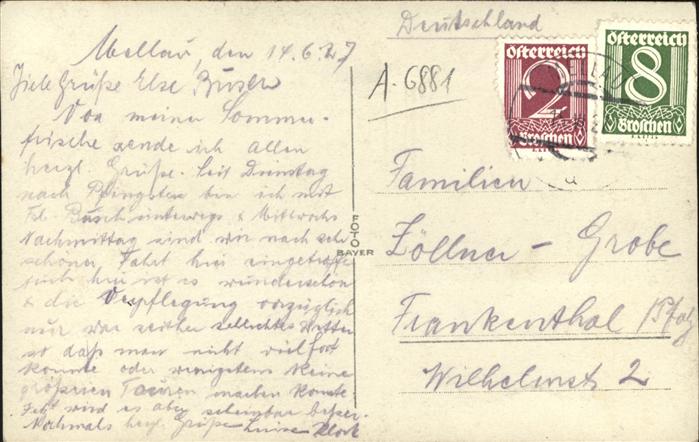 Mellau, den 14.6.27
Viele Grüße Else Busch
Von meiner Sommer-
frische sende ich Allen
herzl. Grüße. Seit Dienstag
nach Pfingsten bin ich mit
Frl. Busch unterwegs & Mittwochs
Nachmittag sind wir nach sehr
schöner Fahrt hier eingetroffen
hier ist es wunderschön
& die Verpflegung vorzüglich
nur war seither schlechtes Wetter
so daß man nicht viel fort
konnte oder wenigstens keine
größeren Touren machen konnte
wird es aber scheinbar besser.
Nochmals herzl. Grüße Luise
FOTO
BAYER
Deutschland
A. 6881
Österreich
2
Groschen
Österreich
8
Groschen
Familien
Zöllner - Grobe
Frankenthal Pfalz
Wilhelmst 2